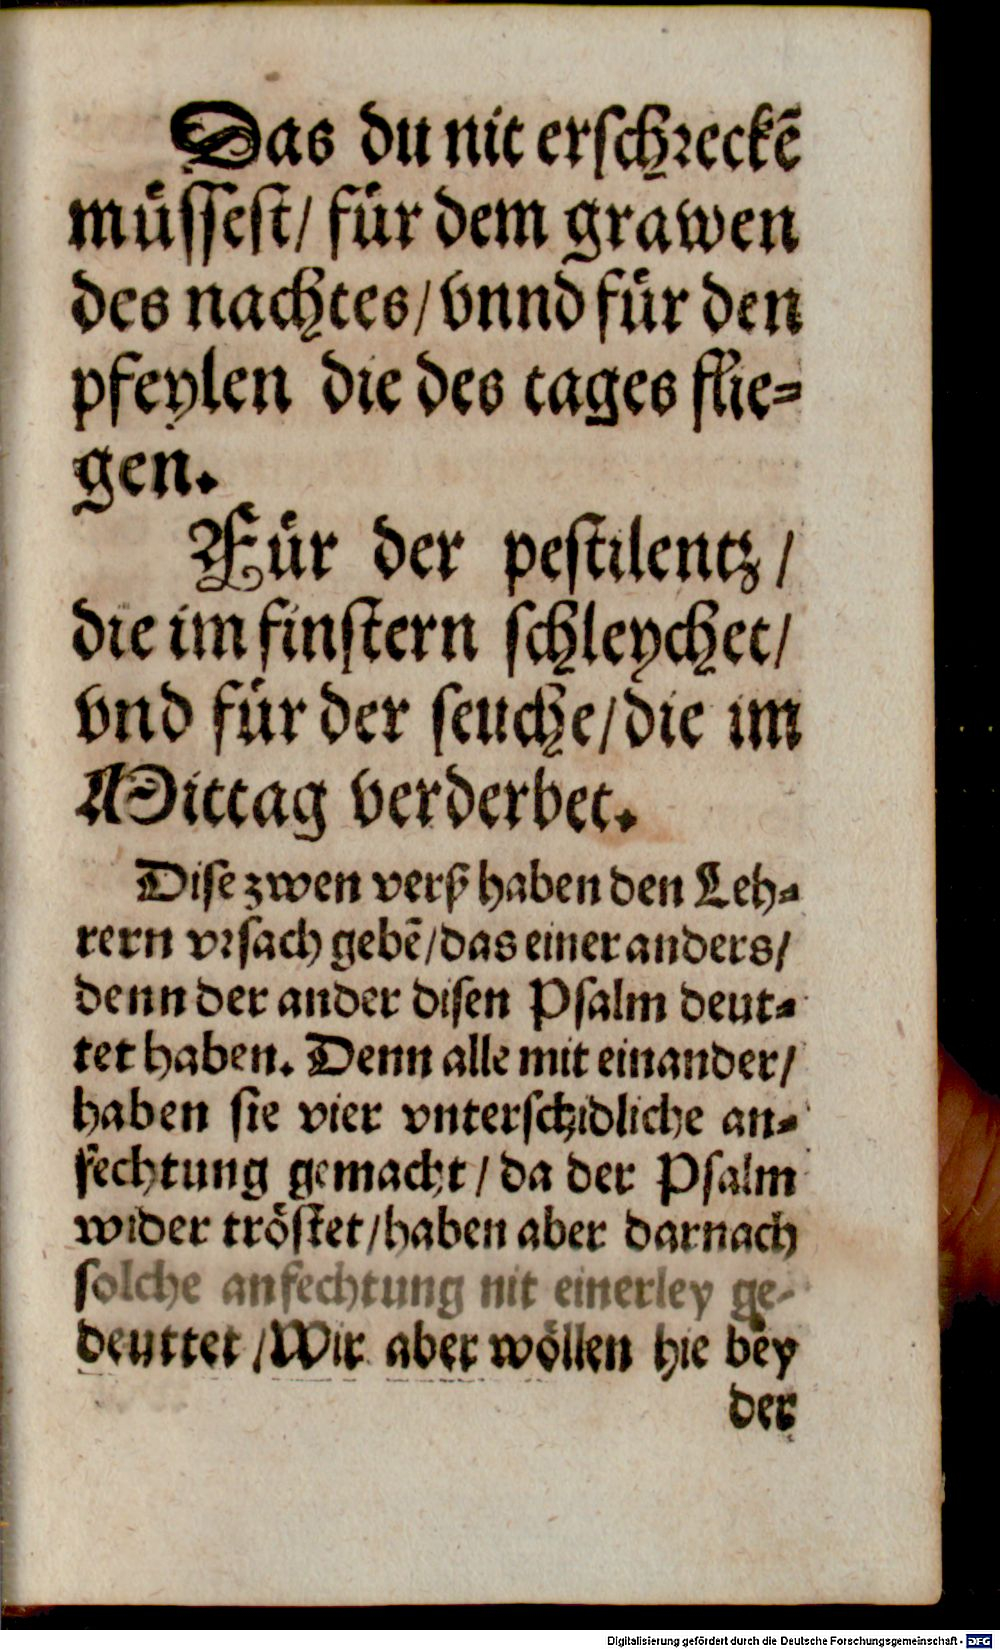 Das du nit erſchꝛeckẽ
müſſeſt/ für dem grawen
des nachtes/ vnnd für den
pfeylen die des tages flie⸗
gen.
Für der peſtilentz/
die im finſtern ſchleychet/
vnd für der ſeuche/ die im
Mittag verderbet.
Diſe zwen verß haben den Leh⸗
rern vꝛſach gebẽ/ das einer anders/
denn der ander diſen Pſalm deut⸗
tet haben. Denn alle mit einander/
haben ſie vier vnterſchidliche an⸗
fechtung gemacht/ da der Pſalm
wider tröſtet/ haben aber darnach
ſolche anfechtung nit einerley ge⸗
deuttet/ Wir aber wöllen hie bey
der
Digitalisierung gefördert durch die Deutsche Forschungsgemeinschaft - DFG